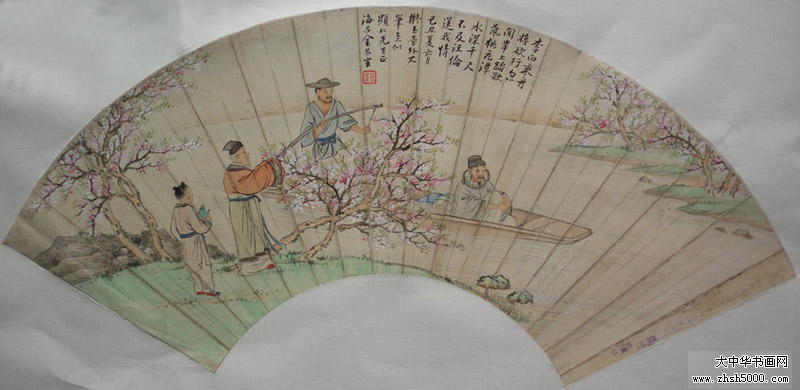 李白乘舟
將欲行忽
聞岸上踏歌
聲桃花潭
水深千尺
不及汪倫
送我情
己丑夏六月
玉壺外史
筆意似
仁先生正
海金
大中华书画网
www.zhsh5000.com